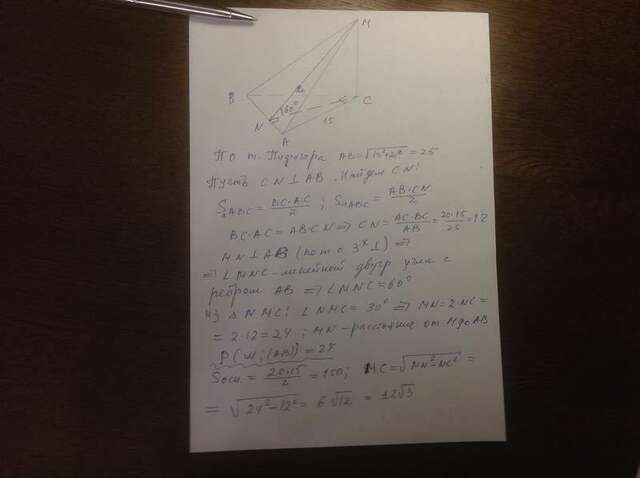 M
B 20 C
60°
N 15
A
По т. Пифагора AB=√15²+20² = 25
Пусть CN⊥AB. Найдем CN:
S△ABC = BC·AC/2 ; S△ABC = AB·CN/2
BC·AC=AB·CN ⇒ CN = AC·BC/AB = 20·15/25 = 12
MN⊥AB (по т. о 3ˣ⊥) ⇒
⇒ ∠MNC-линейной двугр угла с
ребром AB ⇒ ∠MNC=60°
Из △NMC: ∠NMC= 30° ⇒ MN=2·NC=
= 2·12=24 ; MN-расстояние от M до AB
ρ(M;(AB)) = 24
Sосн. = 20·15/2 = 150; MC=√MN²-NC² =
= √24²-12² = 6√12 = 12√3